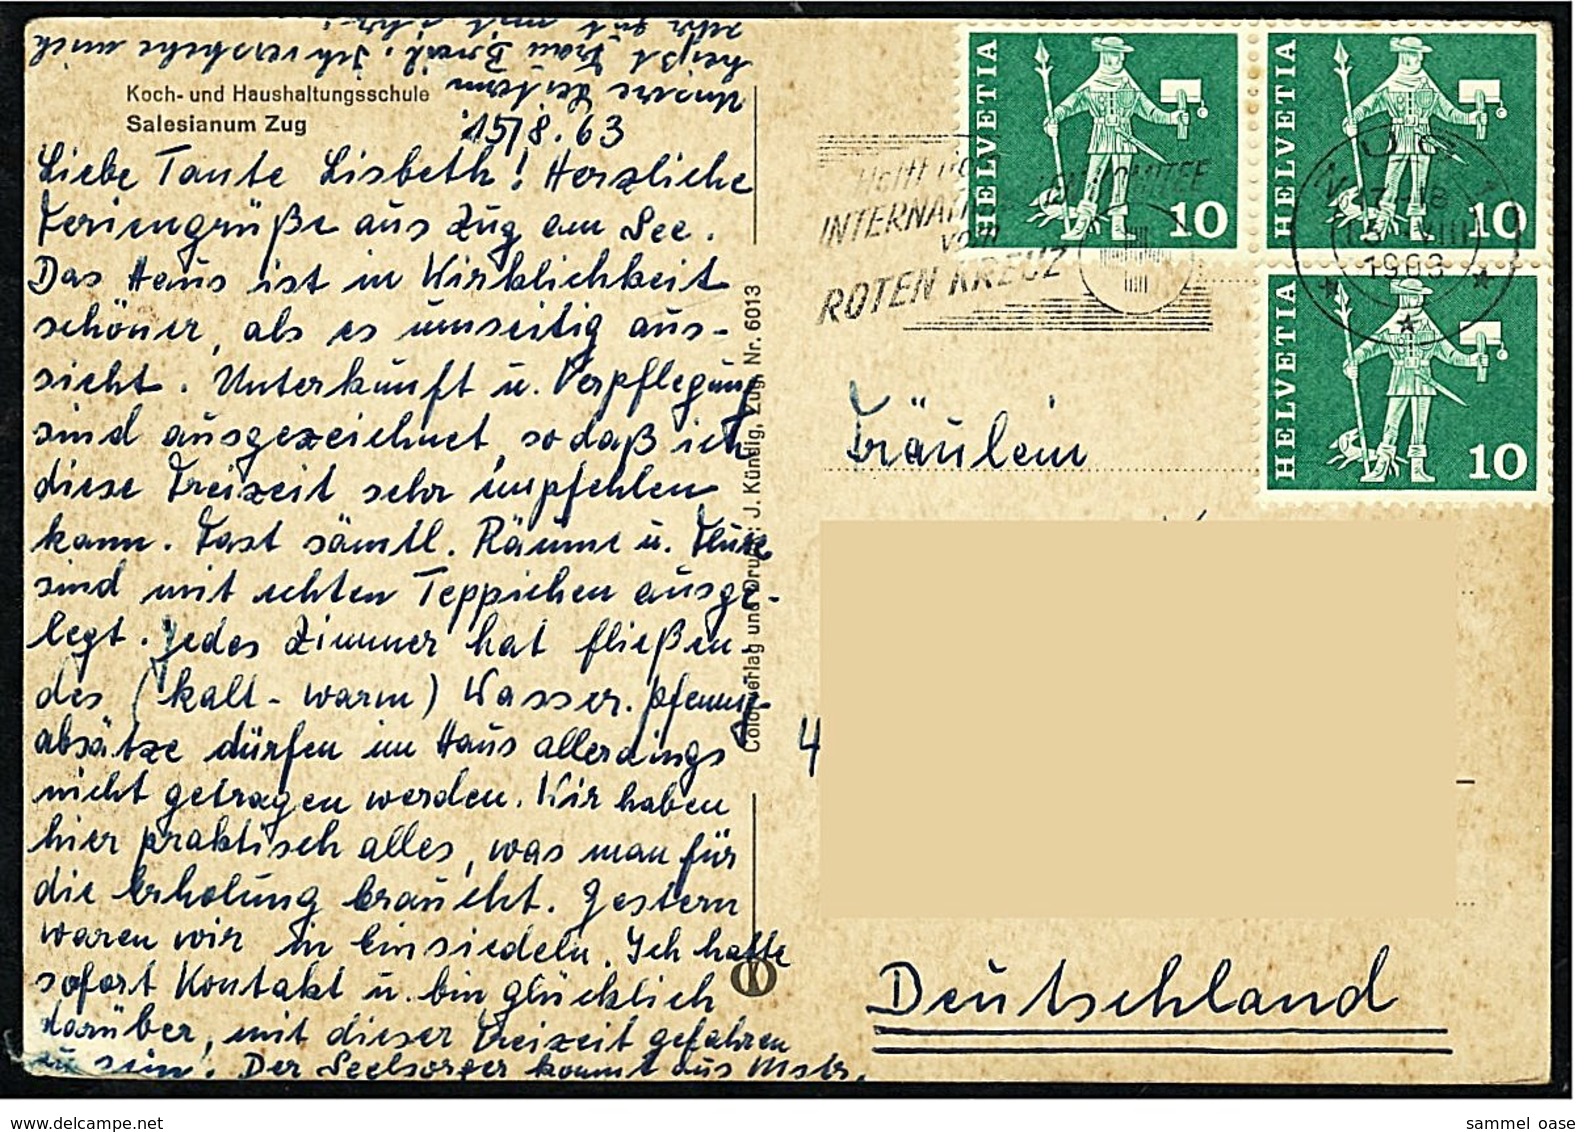 Koch- und Haushaltungsschule
Salesianum Zug
15/8.63
Liebe Tante Lisbeth! Herzliche
Feriengrüße aus Zug am See.
Das Haus ist in Wirklichkeit
schöner, als es umseitig aus-
sieht. Unterkunft u. Verpflegung
sind ausgezeichnet, so daß ich
diese Freizeit sehr empfehlen
kann. Fast sämtl. Räume u. Flure
sind mit echten Teppichen ausge-
legt. Jedes Zimmer hat fließen-
des (kalt-warm) Wasser. Pfennig-
absätze dürfen im Haus allerdings
nicht getragen werden. Wir haben
hier praktisch alles, was man für
die Erholung braucht. Gestern
waren wir in Einsiedeln. Ich hatte
sofort Kontakt u. bin glücklich
darüber, mit dieser Freizeit gefahren
zu sein! Der Seelsorger kommt aus Mstr.
Unsere Leiterin
heißt Frau Ich verstehe mich
sehr gut mit ihr!
Colorverlag und Druck: J. Kündig, Zug, Nr. 6013
HELVETIA
10
HELVETIA
10
HELVETIA
10
Helft dem
INTERNAT KOMITEE
vom
ROTEN KREUZ
ZUG 1
17-18
15.VIII
1963
Fräulein
4
Deutschland
sammel oase
www.delcampe.net